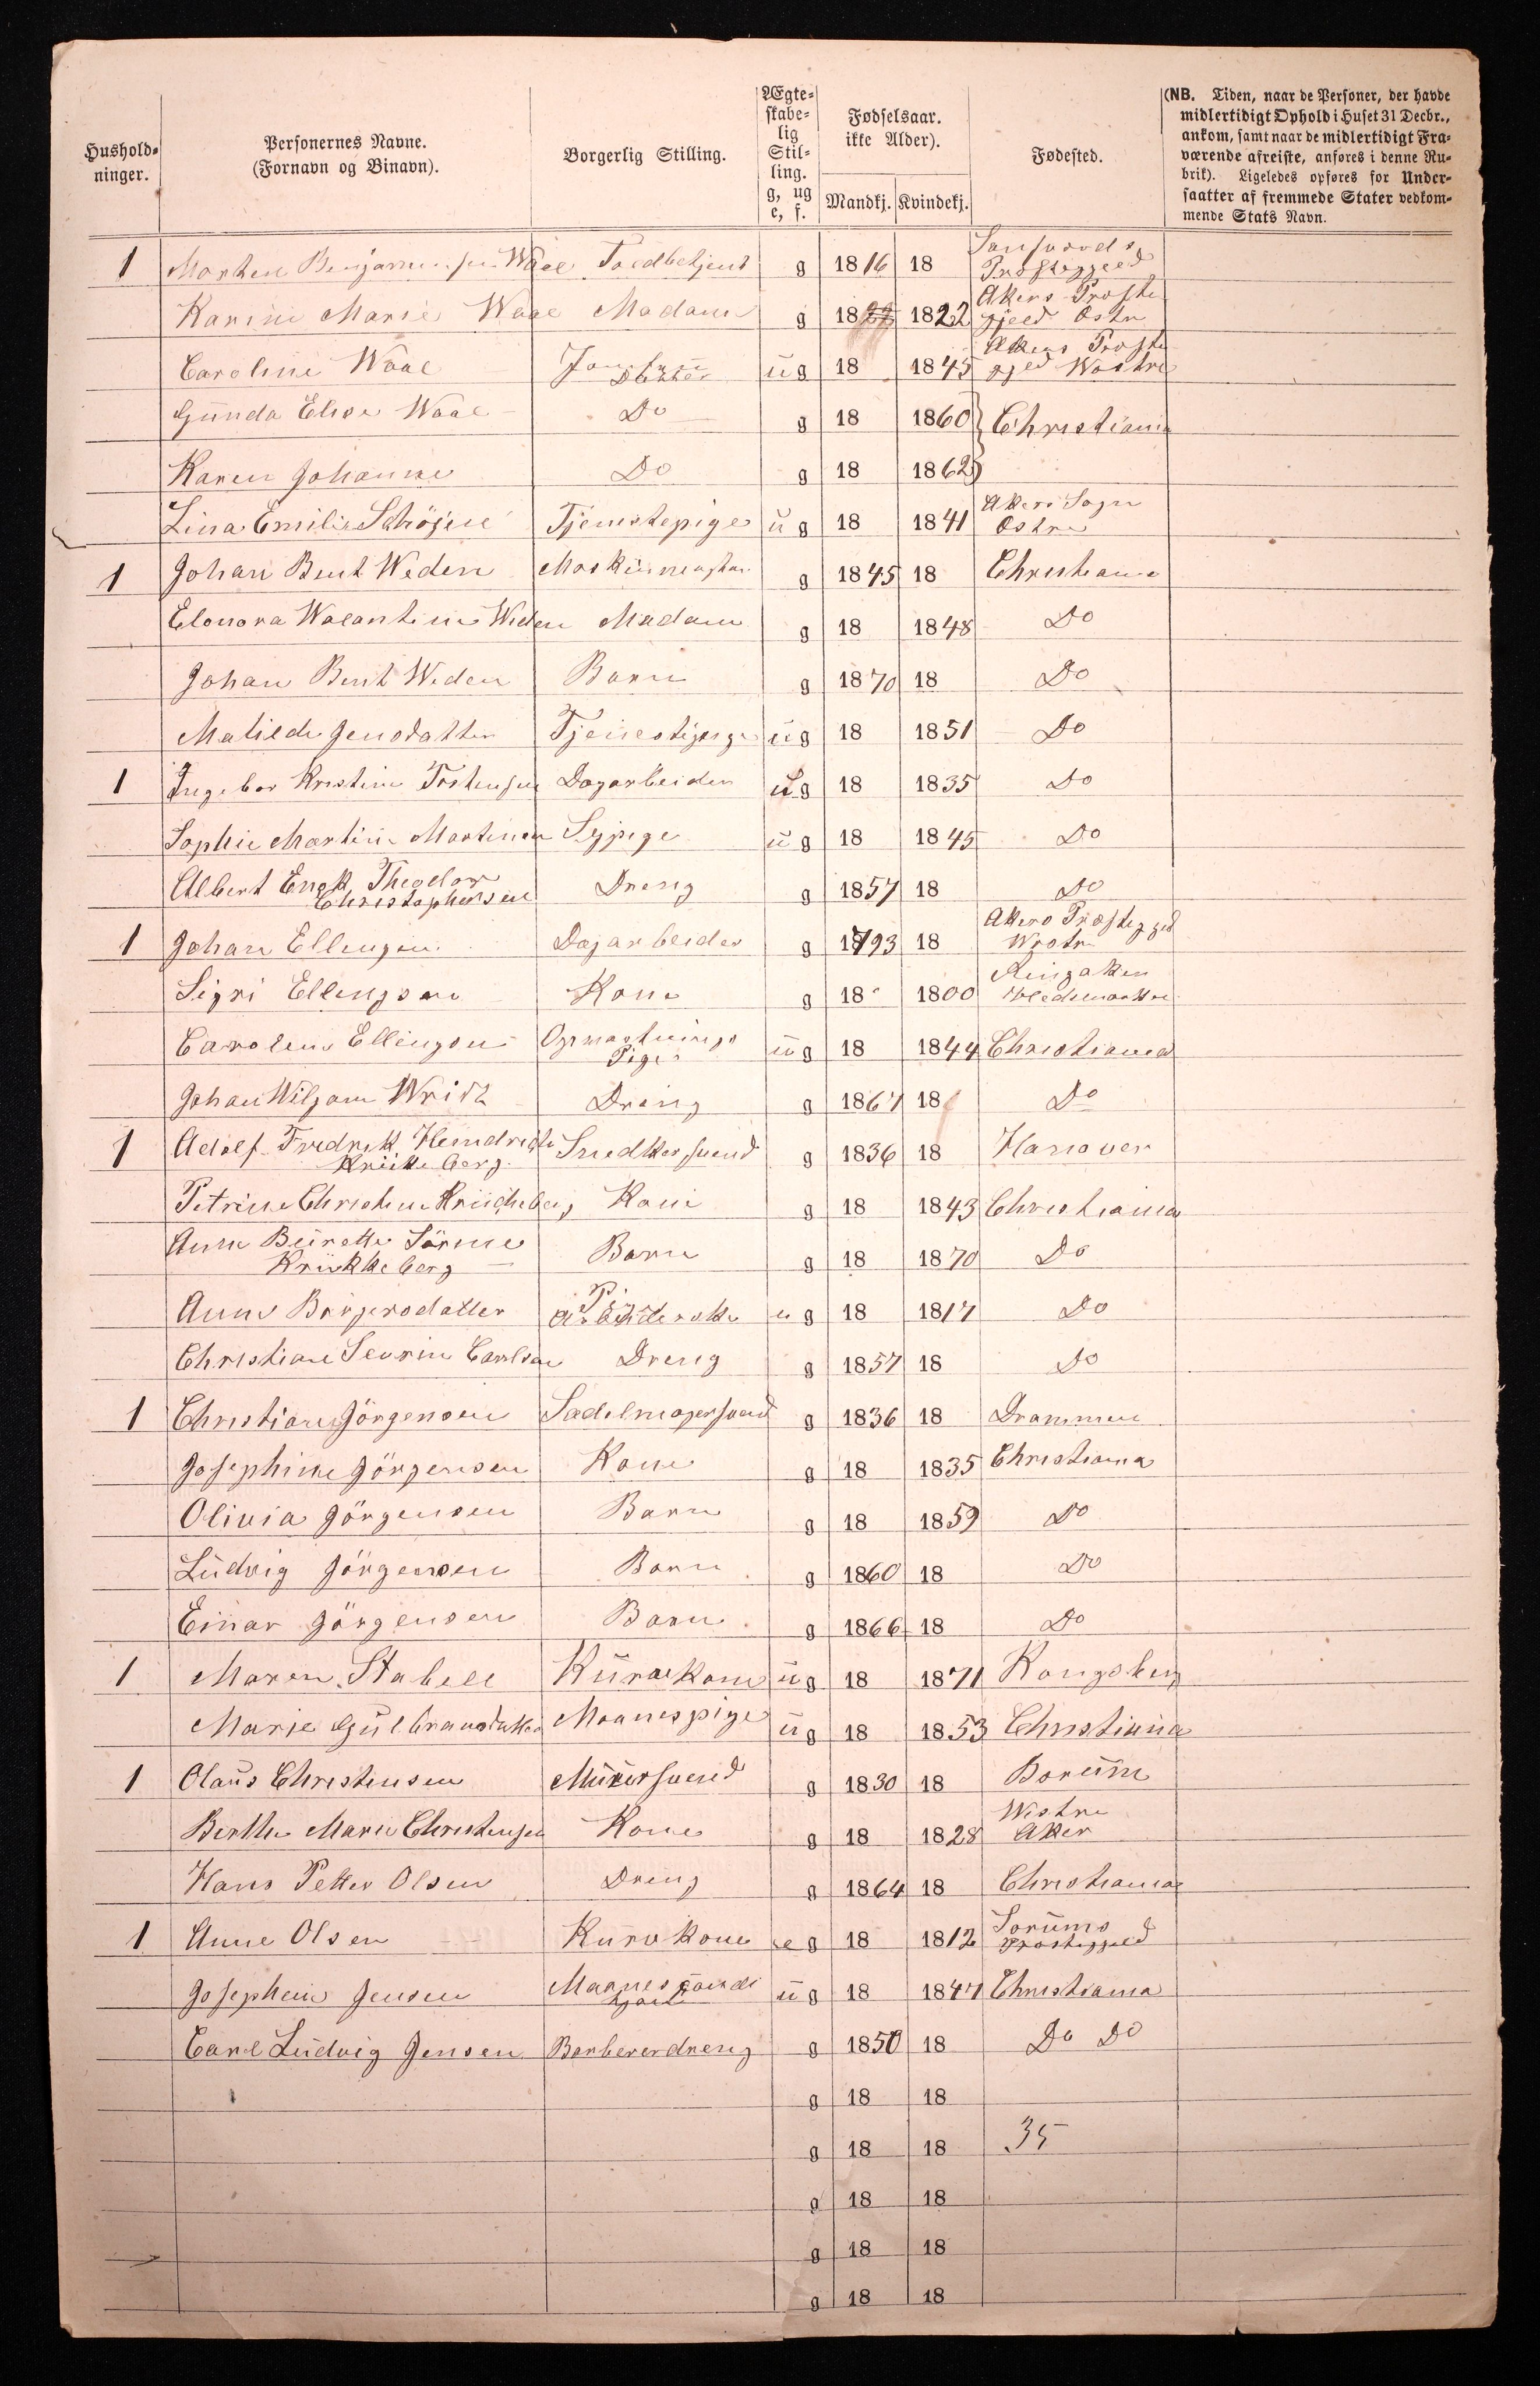 Hushold-
ninger.
Personernes Navne.
(Fornavn og Binavn).
Borgerlig Stilling.
Ægte-
skabe-
lig
Stil-
ling.
g, ug
e, f.
Fødselsaar.
ikke Alder).
Mandkj. Kvindekj.
Fødested.
(NB. Tiden, naar de Personer, der havde
midlertidigt Ophold i Huset 31 Decbr.,
ankom, samt naar de midlertidigt Fra-
værende afreiste, anføres i denne Ru-
brik). Ligeledes opføres for Under-
saatter af fremmede Stater vedkom-
mende Stats Navn.
1 Morten Benjaminsen Waae Toldbetjent g 1816 18 Præstegjeld
Karine Marie Waae Madam g 18 1822 Akers Præste
gjeld Østre
Caroline Waae Datter ug 18 1845 Akers Præste
gjed Westre
Gunda Elise Waae Do g 18 1860 Christiania
Karen Johanne Do g 18 1862
Lina Emilie Schöjen Tjenestepige ug 18 1841 Akers Sogn
Østre
1 Johan Bent Weden g 1845 18 Christiania
Elonora Walantine Weden Madam g 18 1848 Do
Johan Bent Weden Barn g 1870 18 Do
Matilde Jensdatter Tjenestepige ug 18 1851 Do
1 Ingebor Kristine Tostensen Dagarbeider ug 18 1835 Do
Sophie Martine Martinsen Sypige ug 18 1845 Do
Albert Enok Theodor
Christophersen Dreng g 1857 18 Do
1 Johan Ellengsen Dagarbeider g 1793 18 Akers Præstegjed
Westre
Sigri Ellengsen Kone g 18 1800 Ringaker
Hedemarken
Caroline Ellingsen Opvartnings
Pige ug 18 1844 Christiania
Johan Wiljam Writz Dreng g 1867 18 Do
1 Adolf Fredrik Hendrich
Krükkeberg Snedkersvend g 1836 18 Hanover
Petrine Christine Krückeberg Kone g 18 1843 Christiania
Anna Beirette Sörine
Krükkeberg Barn g 18 1870 Do
Anne Borgersdatter Arbeiderske ug 18 1817 Do
Christian Sevrin Carlsen Dreng g 1857 18 Do
1 Christian Jörgensen Sadelmagersvend g 1836 18 Drammen
Josephine Jörgensen Kone g 18 1835 Christiania
Olivia Jörgensen Barn g 18 1859 Do
Ludvig Jörgensen Barn g 1860 18 Do
Einar Jörgensen Barn g 1866 18 Do
1 Maren Stabell Kurvekone ug 18 1871 Kongsberg
Marie Gulbrandsdatter Maanespige ug 18 1853 Christiania
1 Olaus Christensen Murersvend g 1830 18 Bærum
Berthe Marie Christensen Kone g 18 1828 Westre
Aker
Hans Petter Olsen Dreng g 1864 18 Christiania
1 Anne Olsen Kurvkone e g 18 1812 Sorums
Præstegjeld
Josephine Jensen ug 18 1847 Christiania
Carl Ludvig Jensen Barbererdreng g 1850 18 Do Do
g 18 18
g 18 18 35
g 18 18
g 18 18
g 18 18